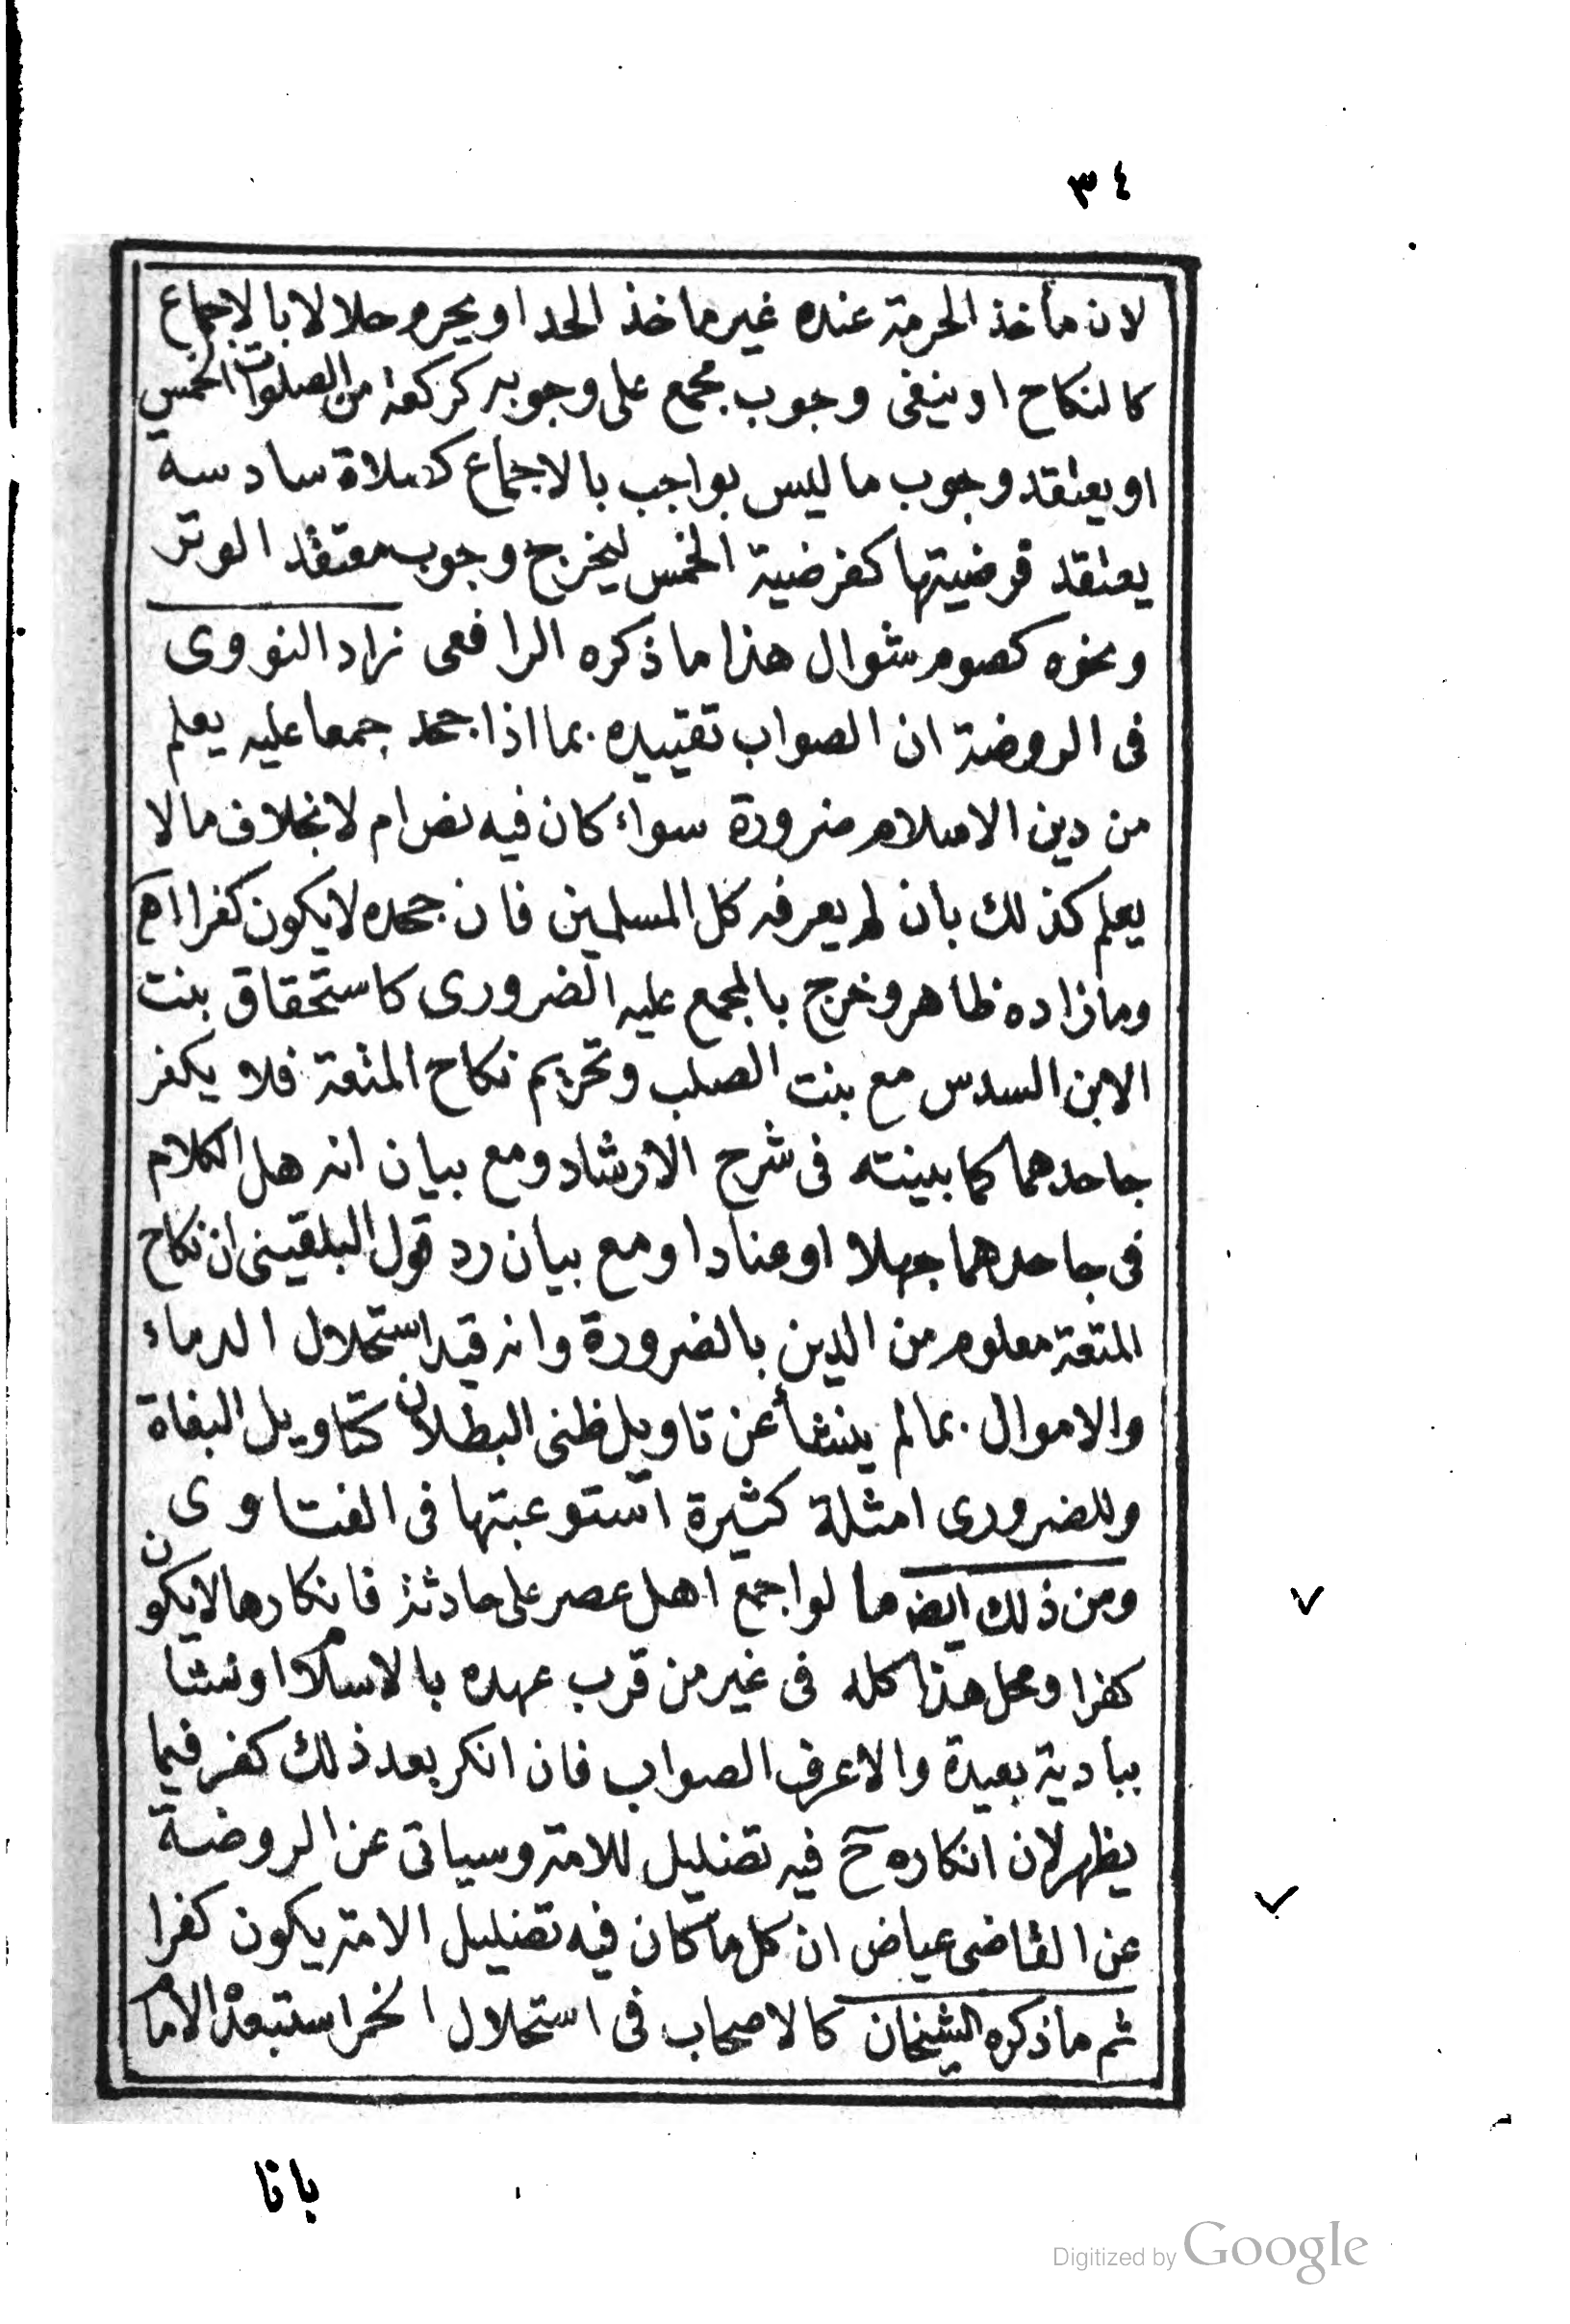 ٣٤
لان مأخذ الحرمة عنده غير ماخذ الحد او يحرم حلالا بالاجماع
كالنكاح او ينفى وجوب مجمع على وجوبه كركعة من الصلوات الخمس
او يعتقد وجوب ما ليس بواجب بالاجماع كصلاة سادسة
يعتقد فرضيتها كفرضية الخمس ليخرج وجوب معتقد الوتر
ونحوه كصوم شوال هذا ما ذكره الرافعى زاد النووى
فى الروضة ان الصواب تقييده بما اذا جحد مجمعا عليه يعلم
من دين الاسلام ضرورة سواء كان فيه نص ام لا بخلاف مالا
يعلم كذلك بان لم يعرفه كل المسلمين فان جحده لا يكون كفرا اه
وما زاده ظاهر وخرج بالمجمع عليه الضرورى كاستحقاق بنت
الابن السدس مع بنت الصلب وتحريم نكاح المتعة فلا يكفر
جاحدهما كما بينته فى شرح الارشاد ومع بيان انه هل الكلام
فى جاحدهما جهلا او عنادا ومع بيان رد قول البلقينى ان نكاح
المتعة معلوم من الدين بالضرورة وانه قيد استحلال الدماء
والاموال بما لم ينشأ عن تاويل ظنى البطلان كتاويل البغاة
وللضرورى امثلة كثيرة استوعبتها فى الفتاوى
ومن ذلك ايضا ما لو اجمع اهل عصر على حادثة فانكارها لا يكون
كفرا ومحل هذا كله فى غير من قرب عهده بالاسلام او نشا
ببادية بعيدة والا عرف الصواب فان انكر بعد ذلك كفر فيما
يظهر لان انكاره ح فيه تضليل للامة وسياتى عن الروضة
عن القاضى عياض ان كل ما كان فيه تضليل الامة يكون كفرا
ثم ما ذكره الشيخان كالاصحاب فى استحلال الخمر استبعده الامام
بانا
Digitized by Google